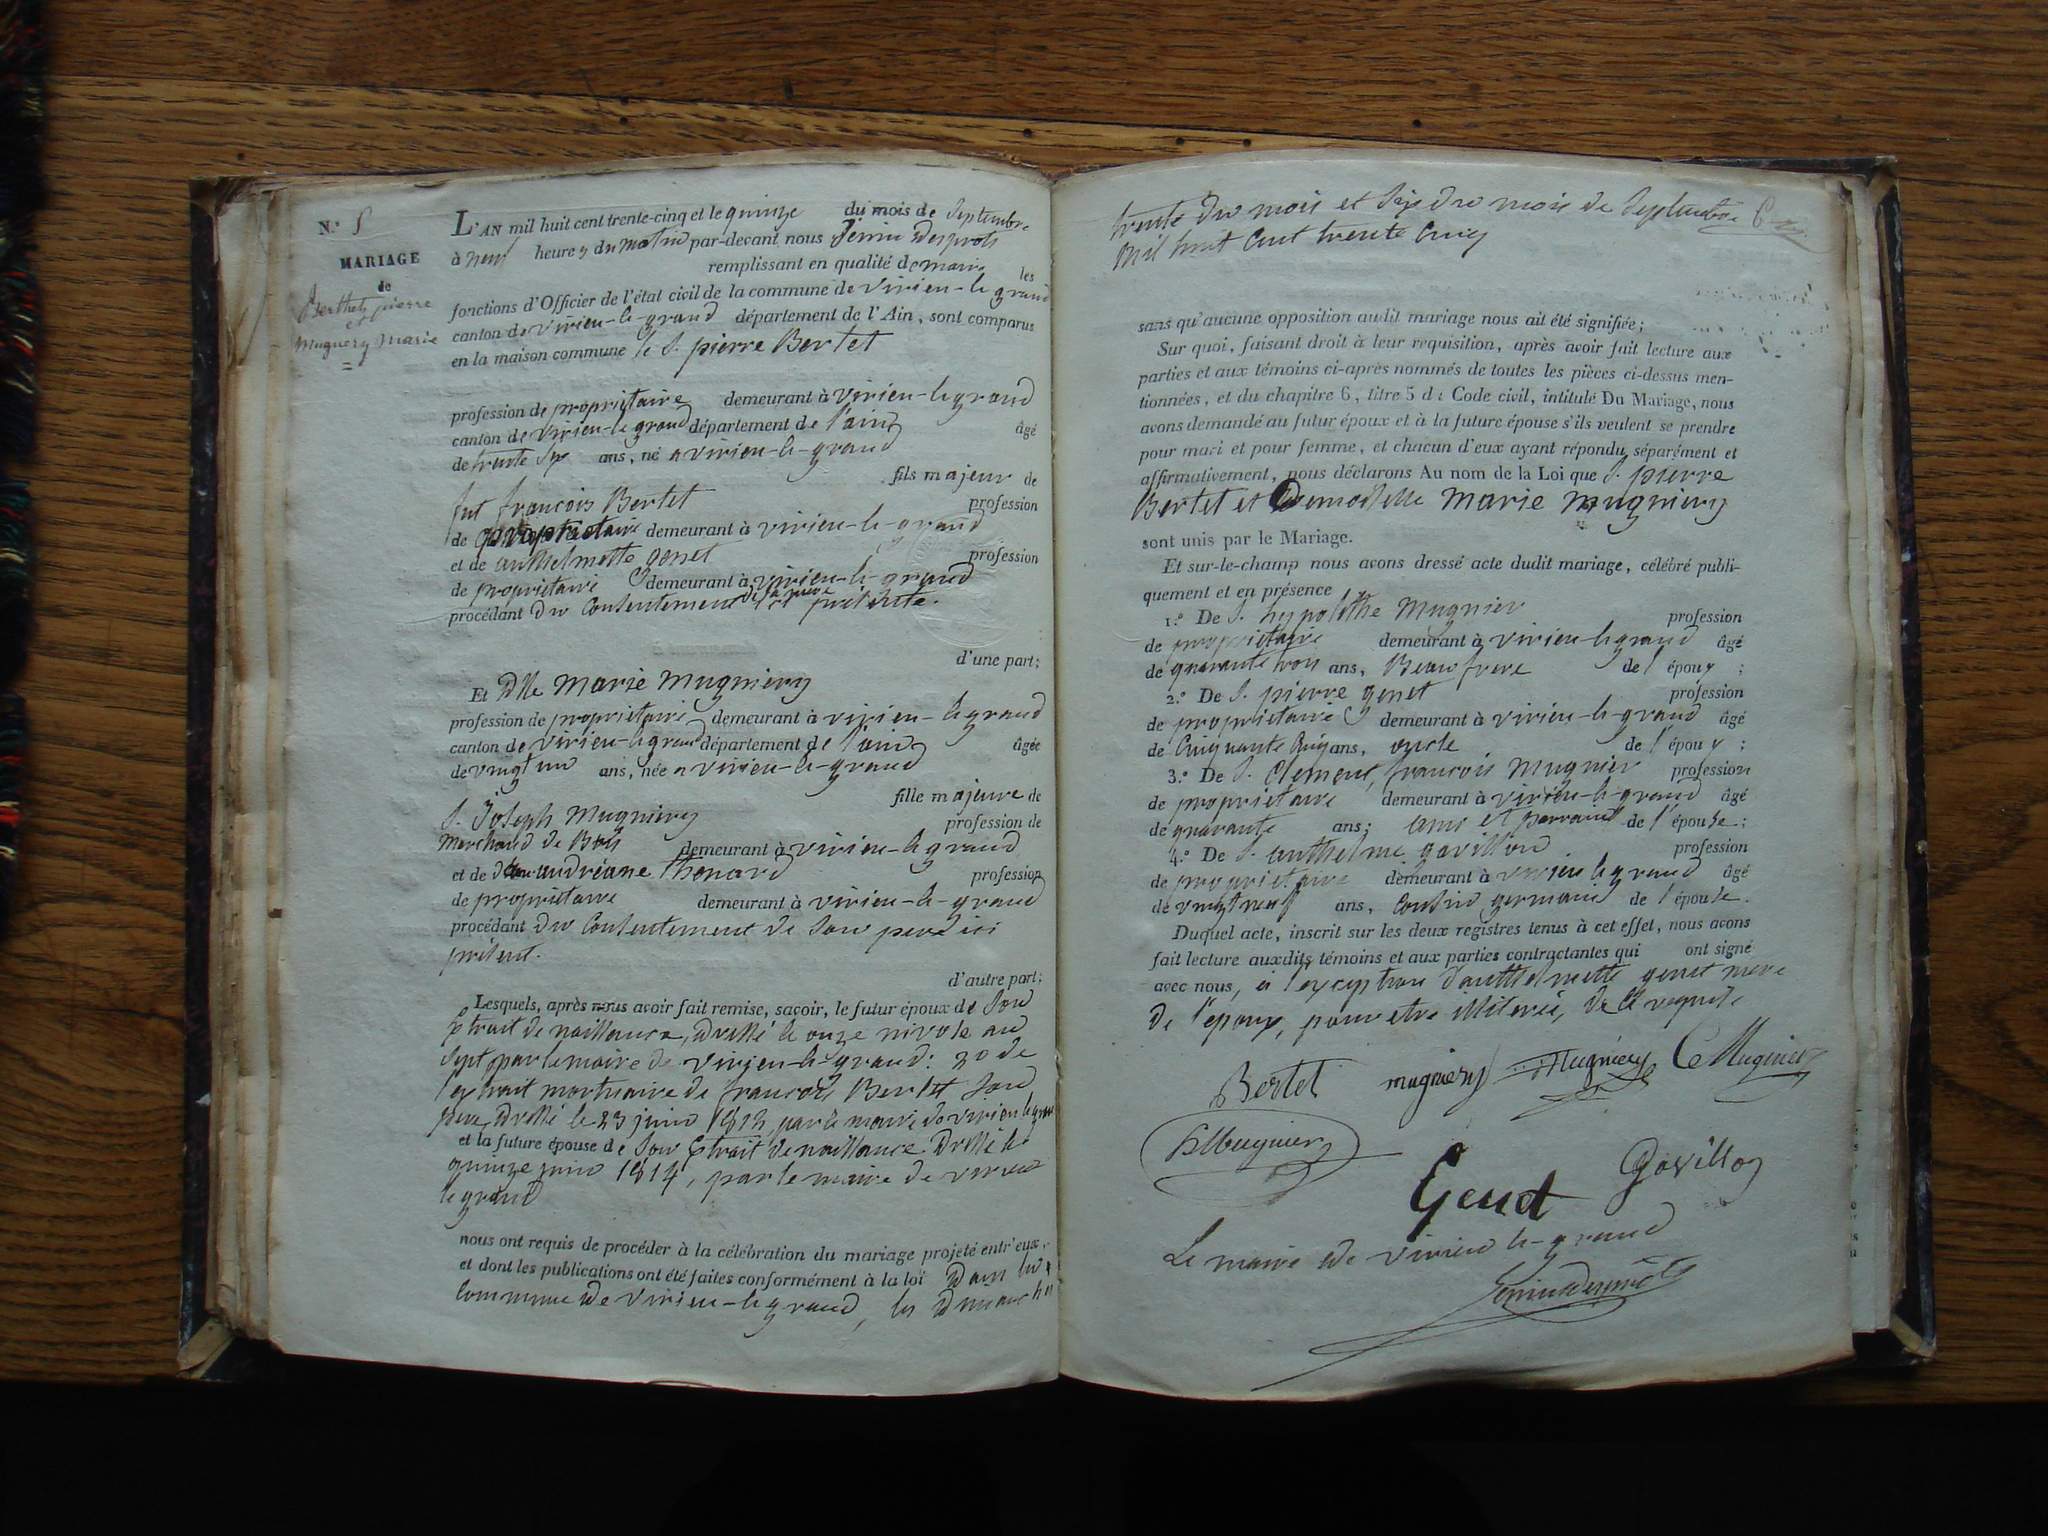 N.º 5
MARIAGE
de
Berthet pierre
et
Mugnery Marie
L'AN mil huit cent trente-cinq et le quinze du mois de Septembre
à neuf heures du matin par-devant nous
remplissant en qualité de maire les
fonctions d'Officier de l'état civil de la commune de virieu-le grand
canton de virieu-le-grand département de l'Ain, sont comparus
en la maison commune le S. pierre Bertet
profession de propriétaire demeurant à virieu-le grand
canton de virieu-le grand département de l'ain âgé
de trente six ans, né a virieu-le-grand
fils majeur de
fut françois Bertet profession
de propriétaire demeurant à virieu-le-grand
et de anthelmette genet profession
de propriétaire demeurant à virieu-le-grand
procédant du Consentement de sa mère ici présente.
d'une part;
Et Dlle Marie Mugniery
profession de propriétaire demeurant à virieu-le grand
canton de virieu-le grand département de l'ain âgée
de vingt un ans, née a virieu-le-grand
fille majeure de
S. Joseph Mugniery profession de
Marchand de Bois demeurant à virieu-le grand
et de andréane thenard profession
de propriétaire demeurant à virieu-le-grand
procédant du Consentement de Son père ici
présent.
d'autre part;
Lesquels, après nous avoir fait remise, savoir, le futur époux de Son
Extrait de naissance, dressé le onze nivose an
Sept, par le maire de virieu-le-grand: 2º de
l'extrait mortuaire de françois Bertet Son
père dressé le 23 juin 1813, par le maire de virieu le grand
et la future épouse de Son Extrait de naissance Dressé le
quinze juin 1814, par le maire de virieu
le grand
nous ont requis de procéder à la célébration du mariage projeté entr'eux,
et dont les publications ont été faites conformément à la loi Dans la
Commune de virieu-le grand, les Dimanches
trente du mois et Six du mois de Septembre
mil huit Cent trente Cinq
sans qu'aucune opposition audit mariage nous ait été signifiée;
Sur quoi, faisant droit à leur requisition, après avoir fait lecture aux
parties et aux témoins ci-après nommés de toutes les pièces ci-dessus men-
tionnées, et du chapitre 6, titre 5 de Code civil, intitulé Du Mariage, nous
avons demandé au futur époux et à la future épouse s'ils veulent se prendre
pour mari et pour femme, et chacun d'eux ayant répondu séparément et
affirmativement, nous déclarons Au nom de la Loi que S. pierre
Bertet et Demoiselle Marie Mugniery
sont unis par le Mariage.
Et sur-le-champ nous avons dressé acte dudit mariage, célébré publi-
quement et en présence
1.º De S. hypolithe Mugnier profession
de propriétaire demeurant à virieu-le grand âgé
de quarante trois ans, Beau frere de l'époux;
2.º De S. pierre genet profession
de propriétaire demeurant à virieu-le-grand âgé
de Cinquante Cinq ans, oncle de l'époux;
3.º De S. Clement, françois Mugnier profession
de propriétaire demeurant à virieu-le-grand âgé
de quarante ans; ami et parrain de l'épouse;
4.º De S. anthelme gavillon profession
de propriétaire demeurant à virieu le grand âgé
de vingt neuf ans, Cousin germain de l'épouse.
Duquel acte, inscrit sur les deux registres tenus à cet effet, nous avons
fait lecture auxdits témoins et aux parties contractantes qui ont signé
avec nous, à l'exception d'anthelmette genet mère
de l'époux, pour etre illiterée, de ce requise
Bertet mugniery Mugniery C Mugnier
H Mugnier
Genet Gavillon
Le maire de virieu le-grand